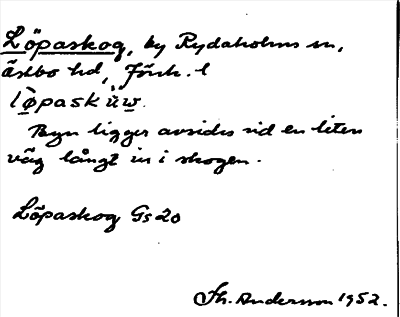 Löpaskog, by Rydaholms sn,
Östbo hd, Jönk. l
lø̀paskùw.
Byn ligger avsides vid en liten
väg långt in i skogen.
Löpaskog Gs20
Th. Andersson 1952.